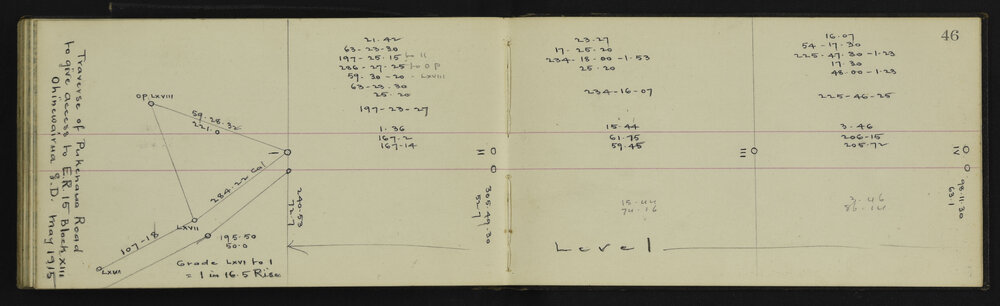 46
Traverse of Pukenaua Road
to give access to E.R. 15 Block XIII
Ohinewairua S.D. May 1915
OP LXVIII
59-28-32
221.0
I
284.22 Cal
LXVII
107-18
LXVI
195.50
50.0
Grade LXVI to I
= 1 in 16.5 Rise
240.53
72.7
21.42
63-23-30
197-25-15 to II
286-27-25 to OP
59-30-20 - LXVIII
63-23-30
25.20
197-23-27
1.36
167.2
167.14
II
305.49.30
52.7
23.27
17-25-20
234-18-00-1-53
25.20
234-16-07
15.44
61.75
59.45
III
15.44
74.16
Level
16.07
54-17-30
225-47-30-1-23
17-30
48-00-1-23
225-46-25
3.46
206.15
205.72
IV
98-11-30
63.1
3.46